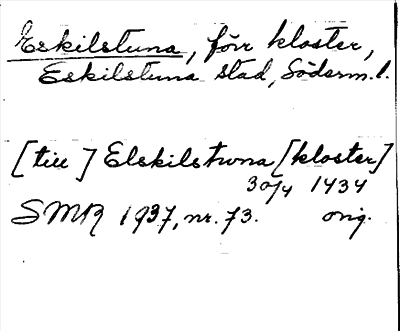 Eskilstuna, förr kloster,
Eskilstuna stad, Söderm. l.
[till] Elskilstwna [kloster]
30/4 1434
SMR 1937, nr. 73. orig.